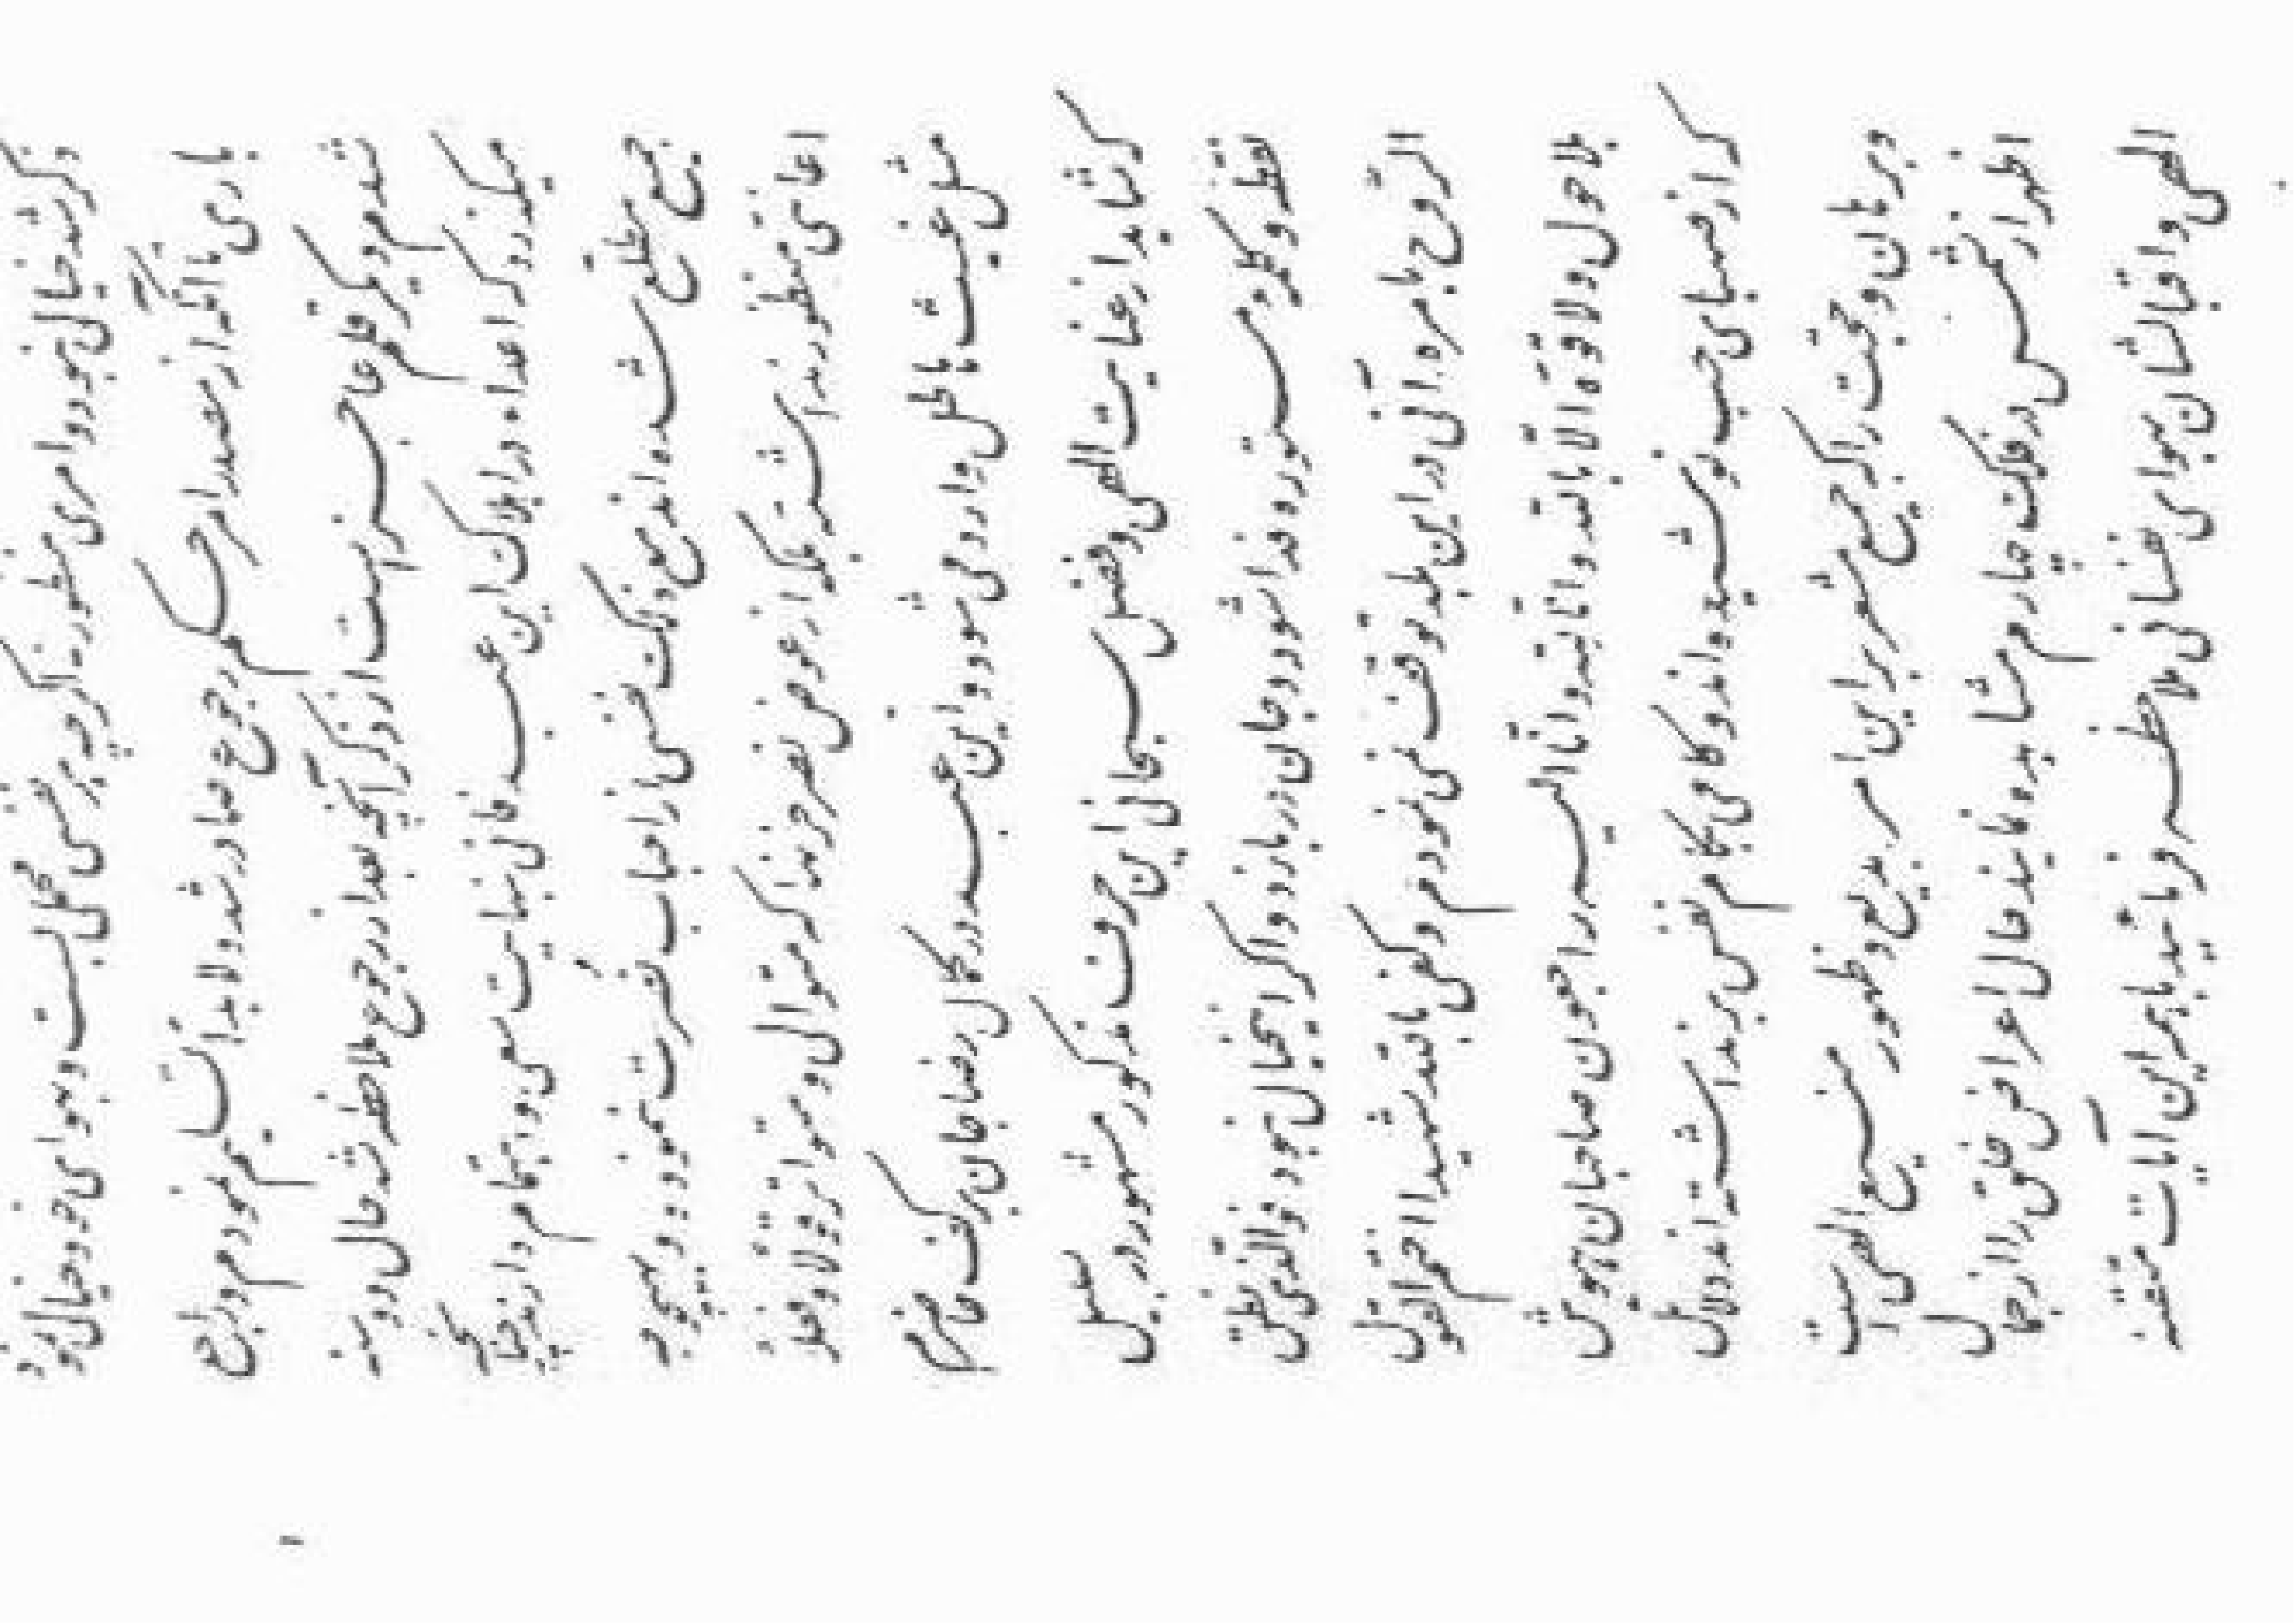 ذکر شد خیال نبود و امری منظور نه اگر چه هر نفسی محملی بست و بهوای خود خیالی نمود
باری تا آنکه از مصدر امر حکم رجوع صادر شد ولابداً تسلیم نمودم و راجع
شدم دیگر قلم عاجز است از ذکر آنچه بعد از رجوع ملاحظه شد حال دو سنه
میگذرد که اعداء در اهلاک این عبد فانی بنهایت سعی و اهتمام دارند چنانچه
جمیع مطلع شده اند مع ذلک نفسی از احباب نصرت ننموده و بهیچوجه
اعانتی منظور نداشته بلکه از عوض نصر حزنها که متوالی و متواتر قولاً و فعلاً
مثل غیث هاطل وارد می شود و این عبد در کمال رضا جان بر کف حاضرم
که شاید از عنایت الهی و فضل سبحانی این حرف مذکور مشهور در سبیل
نقطه و کلمه مستوره فدا شود و جان در بازد و اگر این خیال نبود فوالّذی نطق
الرّوح بامره آنی در این بلد توقّف نمی نمودم و کفی باللّه شهیدا اختم القول
بلا حول و لا قوّة الّا باللّه و انّا للّه و انّا الیه راجعون صاحبان هوش
که از صهبای حب نوشیده اند و گامی بکام نفس برنداشته اند دلائل
و برهان و حجّت را که جمیع مشعر بر این امر بدیع و ظهور منیع الهی است
اظهر از شمس در فلک چهارم مشاهده نمایند حال اعراض خلق را از جمال
الهی و اقبالشان بهوای نفسانی ملاحظه فرمائید با همه این آیات متقنه